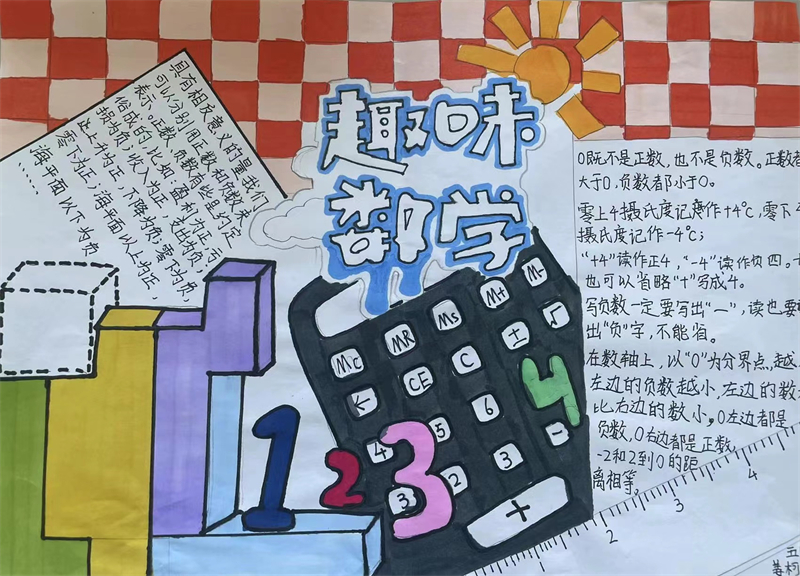 趣味
数学
具有相反意义的量我们
可以分别用正数和负数来
表示。正数、负数有些是约定
俗成的,比如:盈利为正,亏
损为负;收入为正,支出为负;
上升为正,下降为负;零下为负,
零下为正;海平面以上为正,
海平面以下为负
……
0既不是正数,也不是负数。正数者
大于0,负数都小于0。
零上4摄氏度记作+4℃,零下4
摄氏度记作-4℃;
"+4"读作正4,"-4"读作负四。
也可以省略"+"写成4。
写负数一定要写出"-",读也要
出"负"字,不能省。
在数轴上,以"0"为分界点,越
左边的负数越小,左边的数
比右边的数小。0左边都是
负数,0右边都是正数。
-2和2到0的距
离相等。
M-
M+
Ms
MR
Mc
√
±
C
CE
K
4
6
5
4
-
3
2
3
+
1
2
3
1
2
3
4
五
姜柯